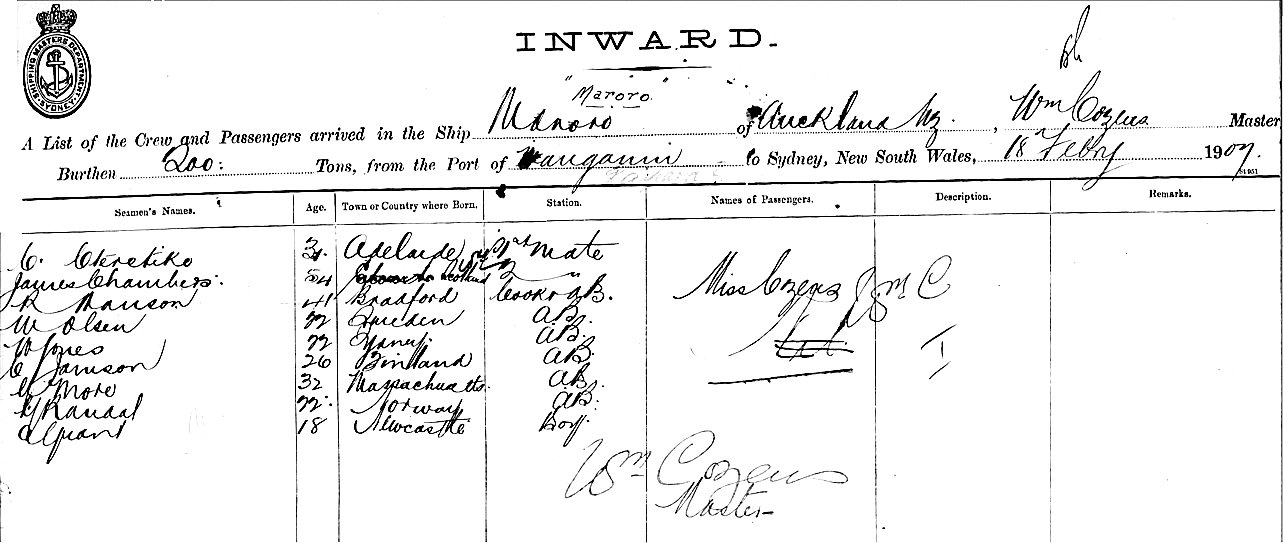 INWARD.
SHIPPING MASTERS DEPARTMENT SYDNEY
"Maroro."
A List of the Crew and Passengers arrived in the Ship Maroro of Auckland NZ., Wm Cozens Master
Burthen 200: Tons, from the Port of to Sydney, New South Wales, 18 Febry 1907.
Seamen's Names. Age. Town or Country where Born. Station. Names of Passengers. Description. Remarks.
C. Adelaide 1st Mate
James Chambers. 54 Scotland 2 "
R Manson 41 Bradford Cook & AB. Miss Cozens
W Olsen 22 Sweden AB.
W Jones 22 AB.
C Jamison 26 Finland AB.
More 32 Massachuatts. AB.
Randal 22. Norway AB.
Grant 18 Newcastle Boy.
Wm Cozens
Master